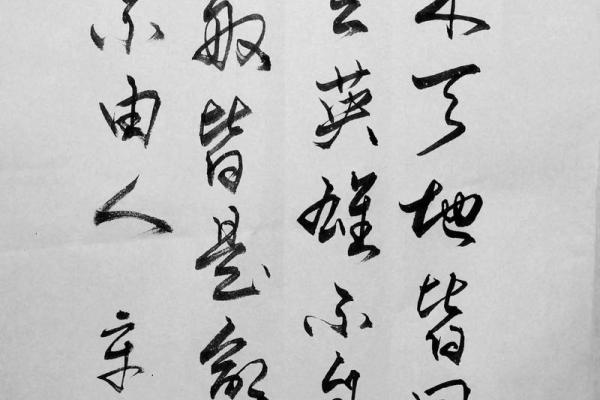 来天地皆同
去英雄不自
般皆是命
不由人